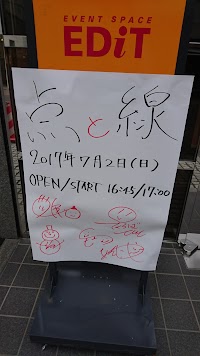 EVENT SPACE
EDiT
点と線
2017年7月2日(日)
OPEN/START 16:45/17:00